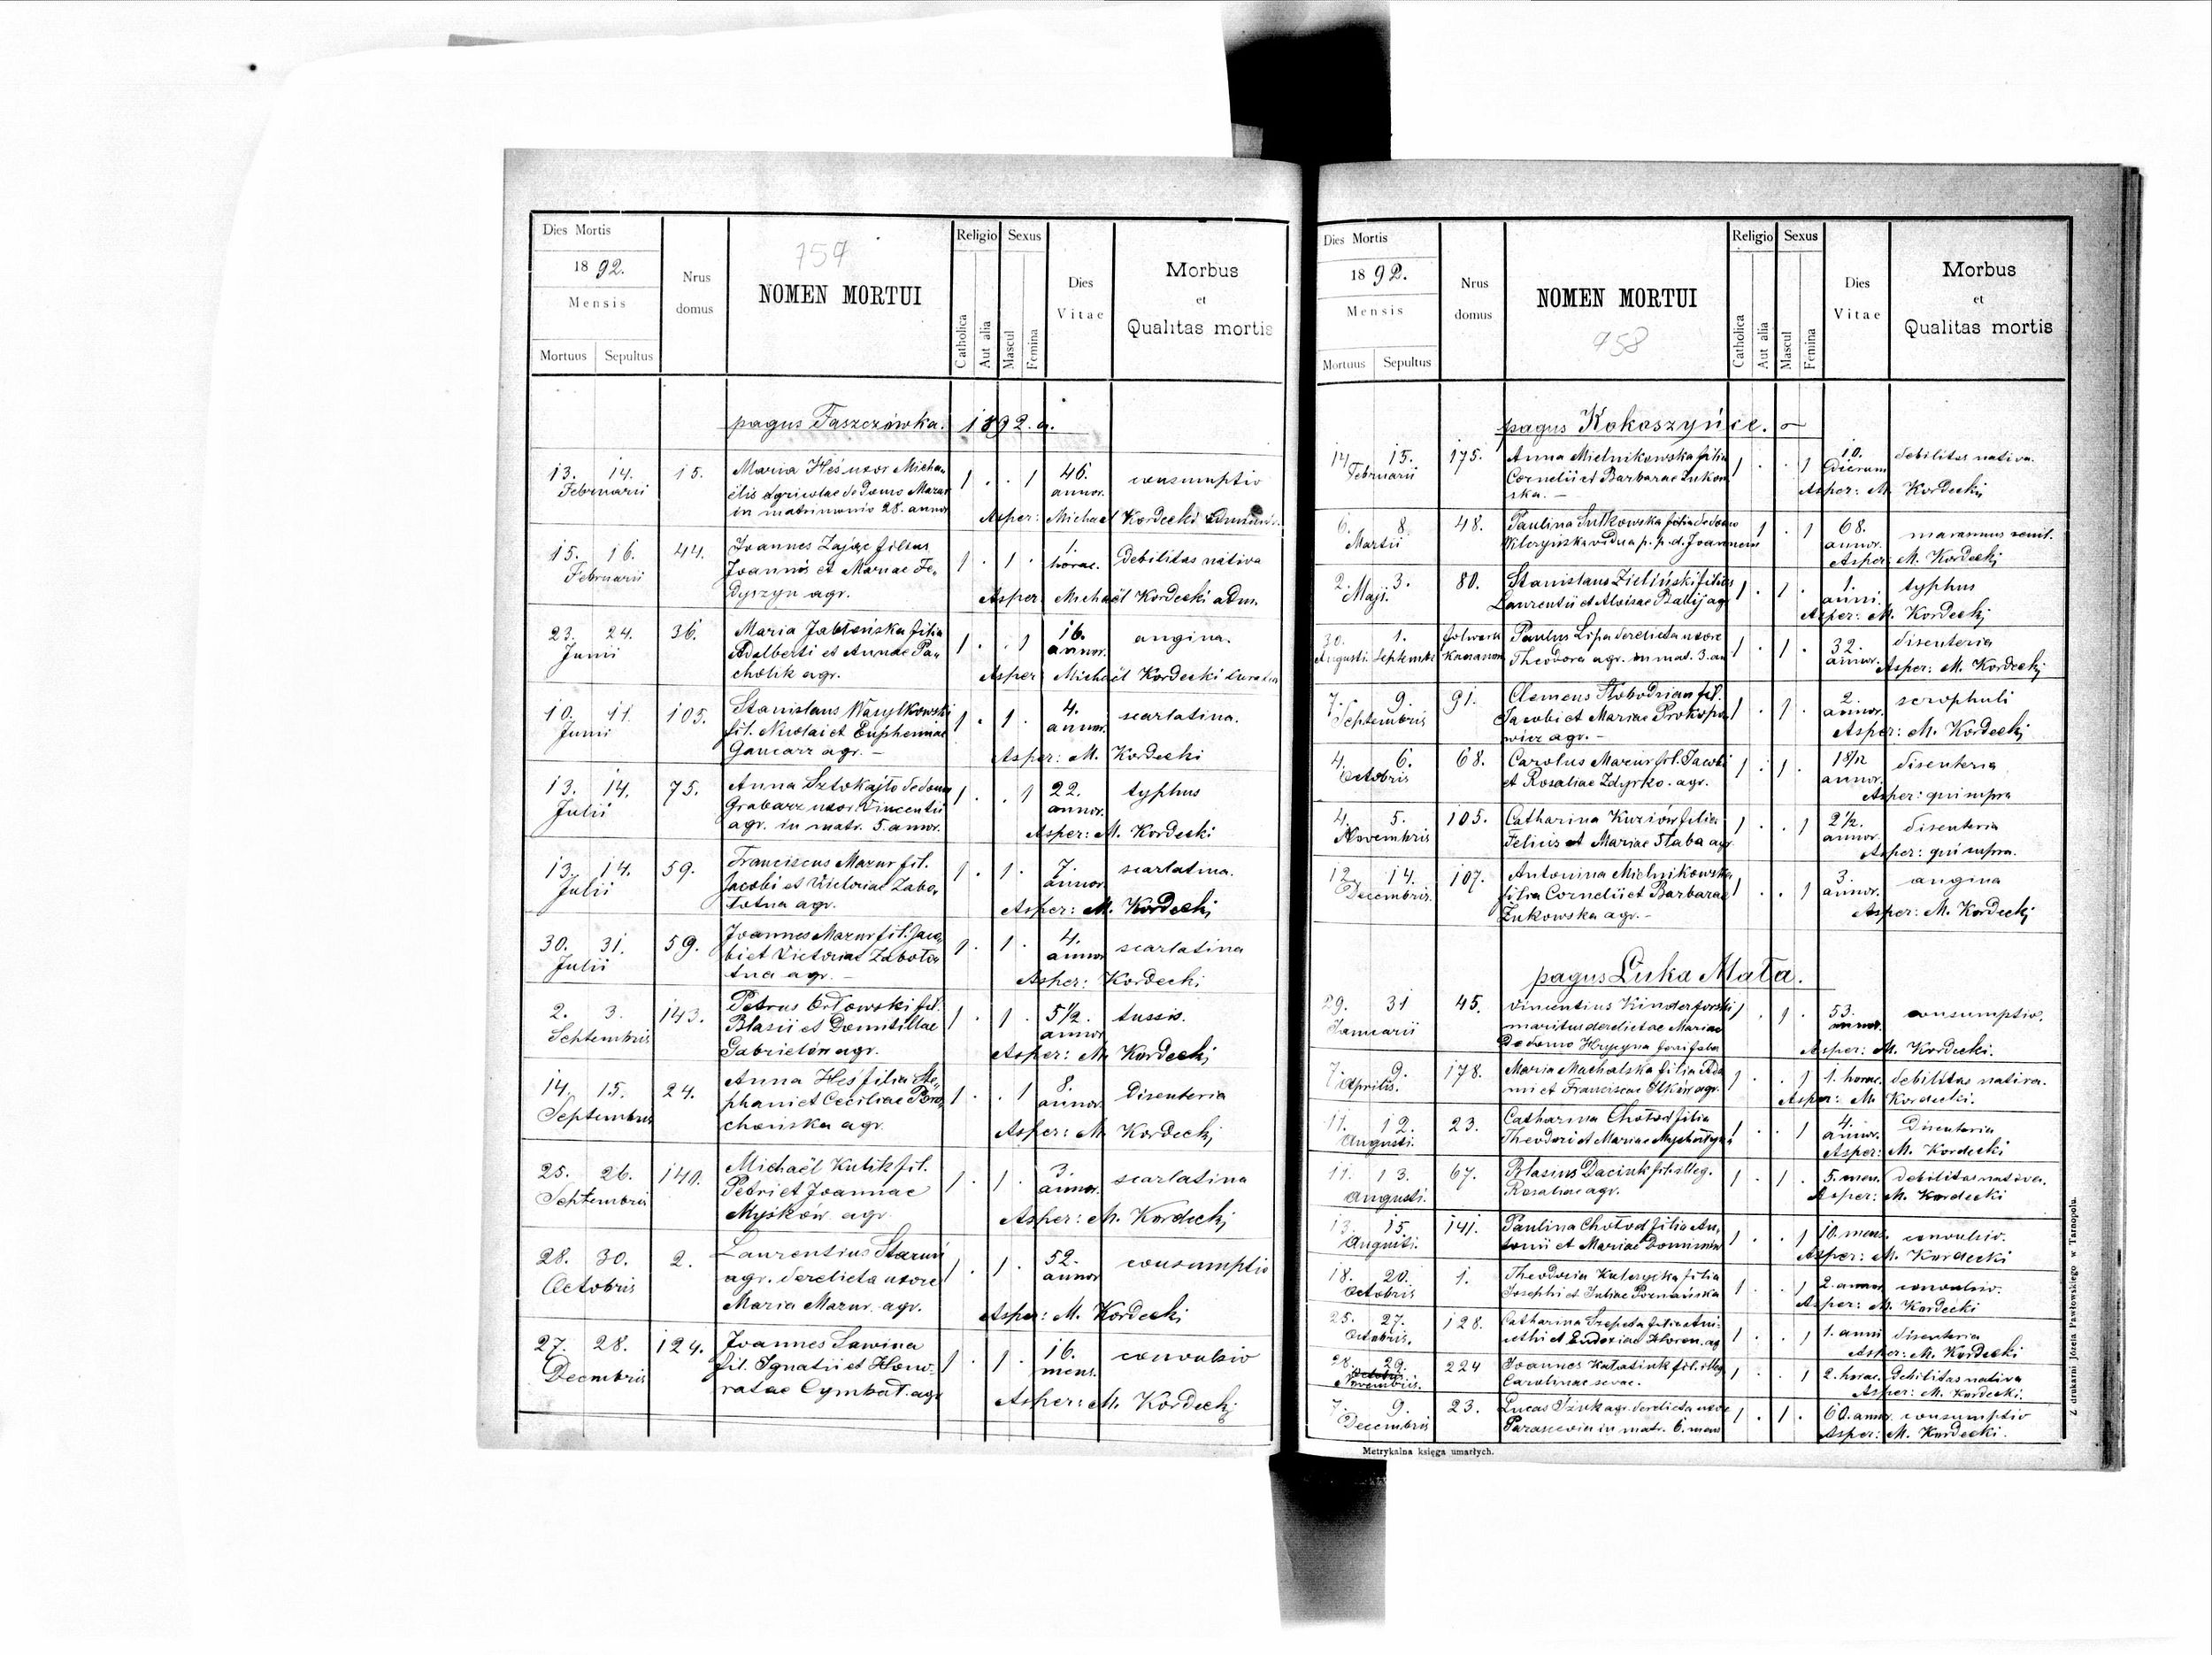 Dies Mortis
1892.
Mensis
Mortuus Sepultus
Nrus
domus
757
NOMEN MORTUI
Religio
Catholica
Aut alia
Sexus
Mascul
Femina
Dies
Vitae
Morbus
et
Qualitas mortis
pagus Faszczówka. 1892. a.
13. 14. 15. Maria Heś uxor Micha„ 1 . . 1 46. consumptio
Februarii ëlis agricolae de domo Mazur annor.
in matrimonio 28. annor Asper: Michaël Kordecki
15. 16. 44. Joannes Zając filius 1 . 1 . 1. debilitas nativa
Februarii Joannis et Mariae Fe„ horae.
dyszyn agr. Asper: Michaël Kordecki adm.
23. 24. 36. Maria Jabłońska filia 1 . . 1 16. angina.
Junii Adalberti et Annae Pa„ annor.
cholik agr. Asper: Michaël Kordecki
10. 11. 105. Stanislaus Wasylkowski 1 . 1 . 4. scarlatina.
Junii fil. Nicolai et Euphemiae annor.
Gancarz agr. – Asper: M. Kordecki
13. 14. 75. Anna Sztokajło de domo 1 . . 1 22. typhus
Julii Grabarz uxor Vincentii annor.
agr. in matr. 5. annor. Asper: M. Kordecki
13. 14. 59. Franciscus Mazur fil. 1 . 1 . 7. scarlatina.
Julii Jacobi et Victoriae Zabo„ annor.
łotna agr. Asper: M. Kordecki
30. 31. 59. Joannes Mazur fil. Jaco„ 1 . 1 . 4. scarlatina
Julii bi et Victoriae Zaboło„ annor
tna agr. – Asper: Kordecki
2. 3. 143. Petrus Orłowski fil. 1 . 1 . 5 1/2. tussis.
Septembris Blasii et Domitillae annor
Gabrielów agr. Asper: M. Kordecki
14. 15. 24. Anna Heś filia Ste„ 1 . . 1 8. disenteria
Septembris phani et Ceciliae annor.
agr. Asper: M. Kordecki
25. 26. 140. Michaël Kulik fil. 1 . 1 . 3. scarlatina
Septembris Petri et Joannae annor.
Myśków agr. Asper: M. Kordecki
28. 30. 2. Laurentius 1 . 1 . 52. consumptio
Octobris agr. derelicta uxore annor
Maria Mazur. agr. Asper: M. Kordecki
27. 28. 124. Joannes Sawina 1 . 1 . 16. convulsio
Decembris fil. Ignatii et Hono„ mens.
ratae Cymbał. agr. Asper: M. Kordecki
Dies Mortis
1892.
Mensis
Mortuus Sepultus
Nrus
domus
NOMEN MORTUI
758
Religio
Catholica
Aut alia
Sexus
Mascul
Femina
Dies
Vitae
Morbus
et
Qualitas mortis
pagus Kokoszyńce.
14. 15. 175. Anna Mielnikowska filia 1 . . 1 10. debilitas nativa.
Februarii Cornelii et Barbarae Żukow dierum
ska. – Asper: M. Kordecki
6. 8. 48. Paulina Sutkowska filia de domo 1 . 1 68. marasmus senil.
Martii vidua p. p. d. Joannem annor.
Asper: M. Kordecki
2. 3. 80. Stanislaus Zieliński filius 1 . 1 . 1. typhus
Maji. Laurentii et Aloisae Balij agr anni.
Asper: M. Kordecki
30. 1. folwark Paulus Lipa derelicta uxore 1 . 1 . 32. disenteria
Augusti. Septembr. Theodora agr. in mat. 3. an annor. Asper: M. Kordecki
7. 9. 91. Clemens Słobodzian fil. 1 . 1 . 2. scrophuli
Septembris Jacobi et Mariae Prokopo annor.
wicz agr. – Asper: M. Kordecki
4. 6. 68. Carolus Mazur fil. Jacobi 1 . 1 . disenteria
Octobris et Rosaliae Zdyrko. agr. annor.
Asper: qui supra
4. 5. 105. Catharina Kuriów filia 1 . . 1 2 1/2. disenteria
Novembris Felicis et Mariae Słaba agr annor.
Asper: qui supra.
12. 14. 107. Antonina Mielnikowska 1 . . 1 3. angina
Decembris. filia Cornelii et Barbarae annor.
Żukowska agr. – Asper: M. Kordecki
pagus Łuka Mała.
29. 31 45. Vincentius 1 . 1 . 53. consumptio.
Januarii maritus derelictae Mariae annor.
de domo Asper: M. Kordecki.
7. 9. 178. Maria Machalska filia Ada 1 . . 1 1. horae. debilitas nativa.
Aprilis. mi et Franciscae Ilków agr. Asper: M. Kordecki.
11. 12. 23. Catharina Chołod filia 1 . . 1 4. disenteria
Augusti. Theodori et Mariae annor.
Asper: M. Kordecki
11. 13. 67. Blasius Daciuk fil. illeg. 1 . 1 . 5. men. debilitas nativa.
Augusti. Rosaliae agr. Asper: M. Kordecki
13. 15. 141. Paulina Chołod filia An„ 1 . . 1 10. mens. convulsio.
Augusti. tonii et Mariae Asper: M. Kordecki
18. 20. 1. Theodosia Kulczycka filia 1 . . 1 2. annor convulsio.
Octobris Josephi et Juliae Poznańska Asper: M. Kordecki
25. 27. 128. Catharina Szepeta filia Ani„ 1 . . 1 1. anni disenteria
Octobris. cethi et Eudoxiae agr Asper: M. Kordecki
28. 29. 224 Joannes Kałasiuk fil. illeg. 1 . . 1 2. horae. debilitas nativa
Novembris. Carolinae Asper: M. Kordecki.
7. 9. 23. Lucas agr. derelicta uxore 1 . 1 . 60. annor. consumptio
Decembris Parascevia in matr. 6. mens Asper: M. Kordecki.
Metrykalna księga umarłych.
Z drukarni Józefa Pawłowskiego w Tarnopolu.